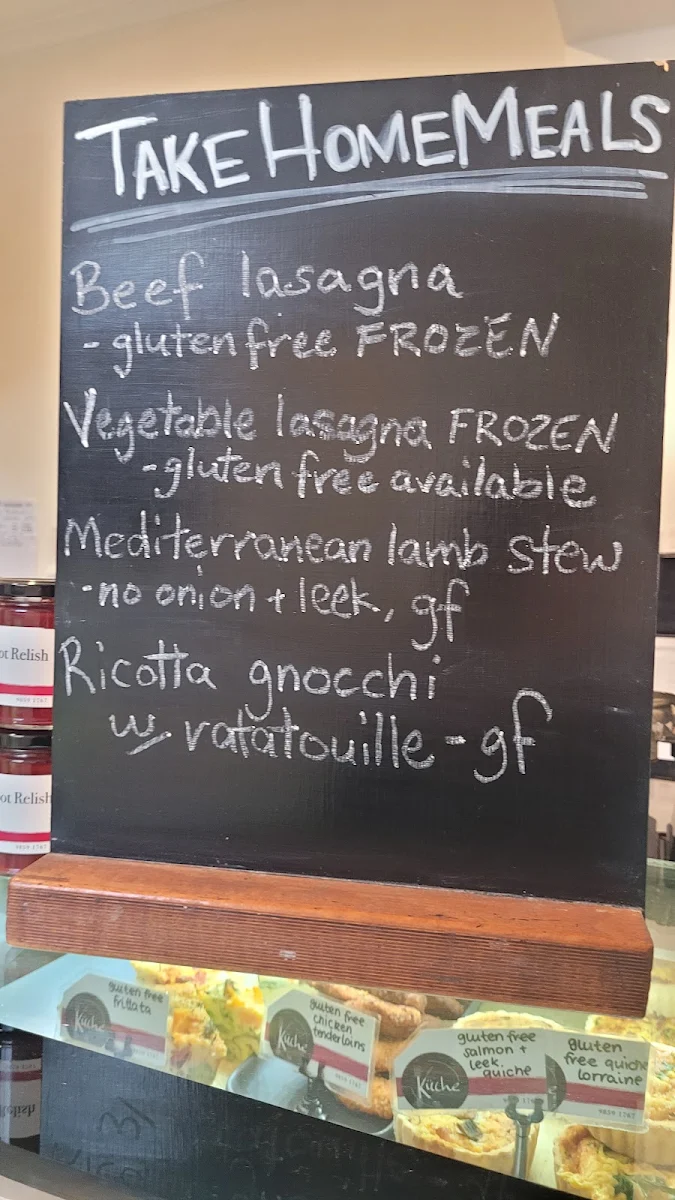 TAKE HOME MEALS
Beef lasagna
- gluten free FROZEN
Vegetable lasagna FROZEN
- gluten free available
Mediterranean lamb stew
- no onion + leek, gf
Ricotta gnocchi
w/ ratatouille - gf
ot Relish
9859 1767
ot Relish
9859 1767
elish
gluten free
frittata
Küche
gluten free
chicken
tenderloins
Küche
9859 1767
gluten free
salmon +
leek.
quiche
Küche
gluten
free quiche
lorraine
9859 1767